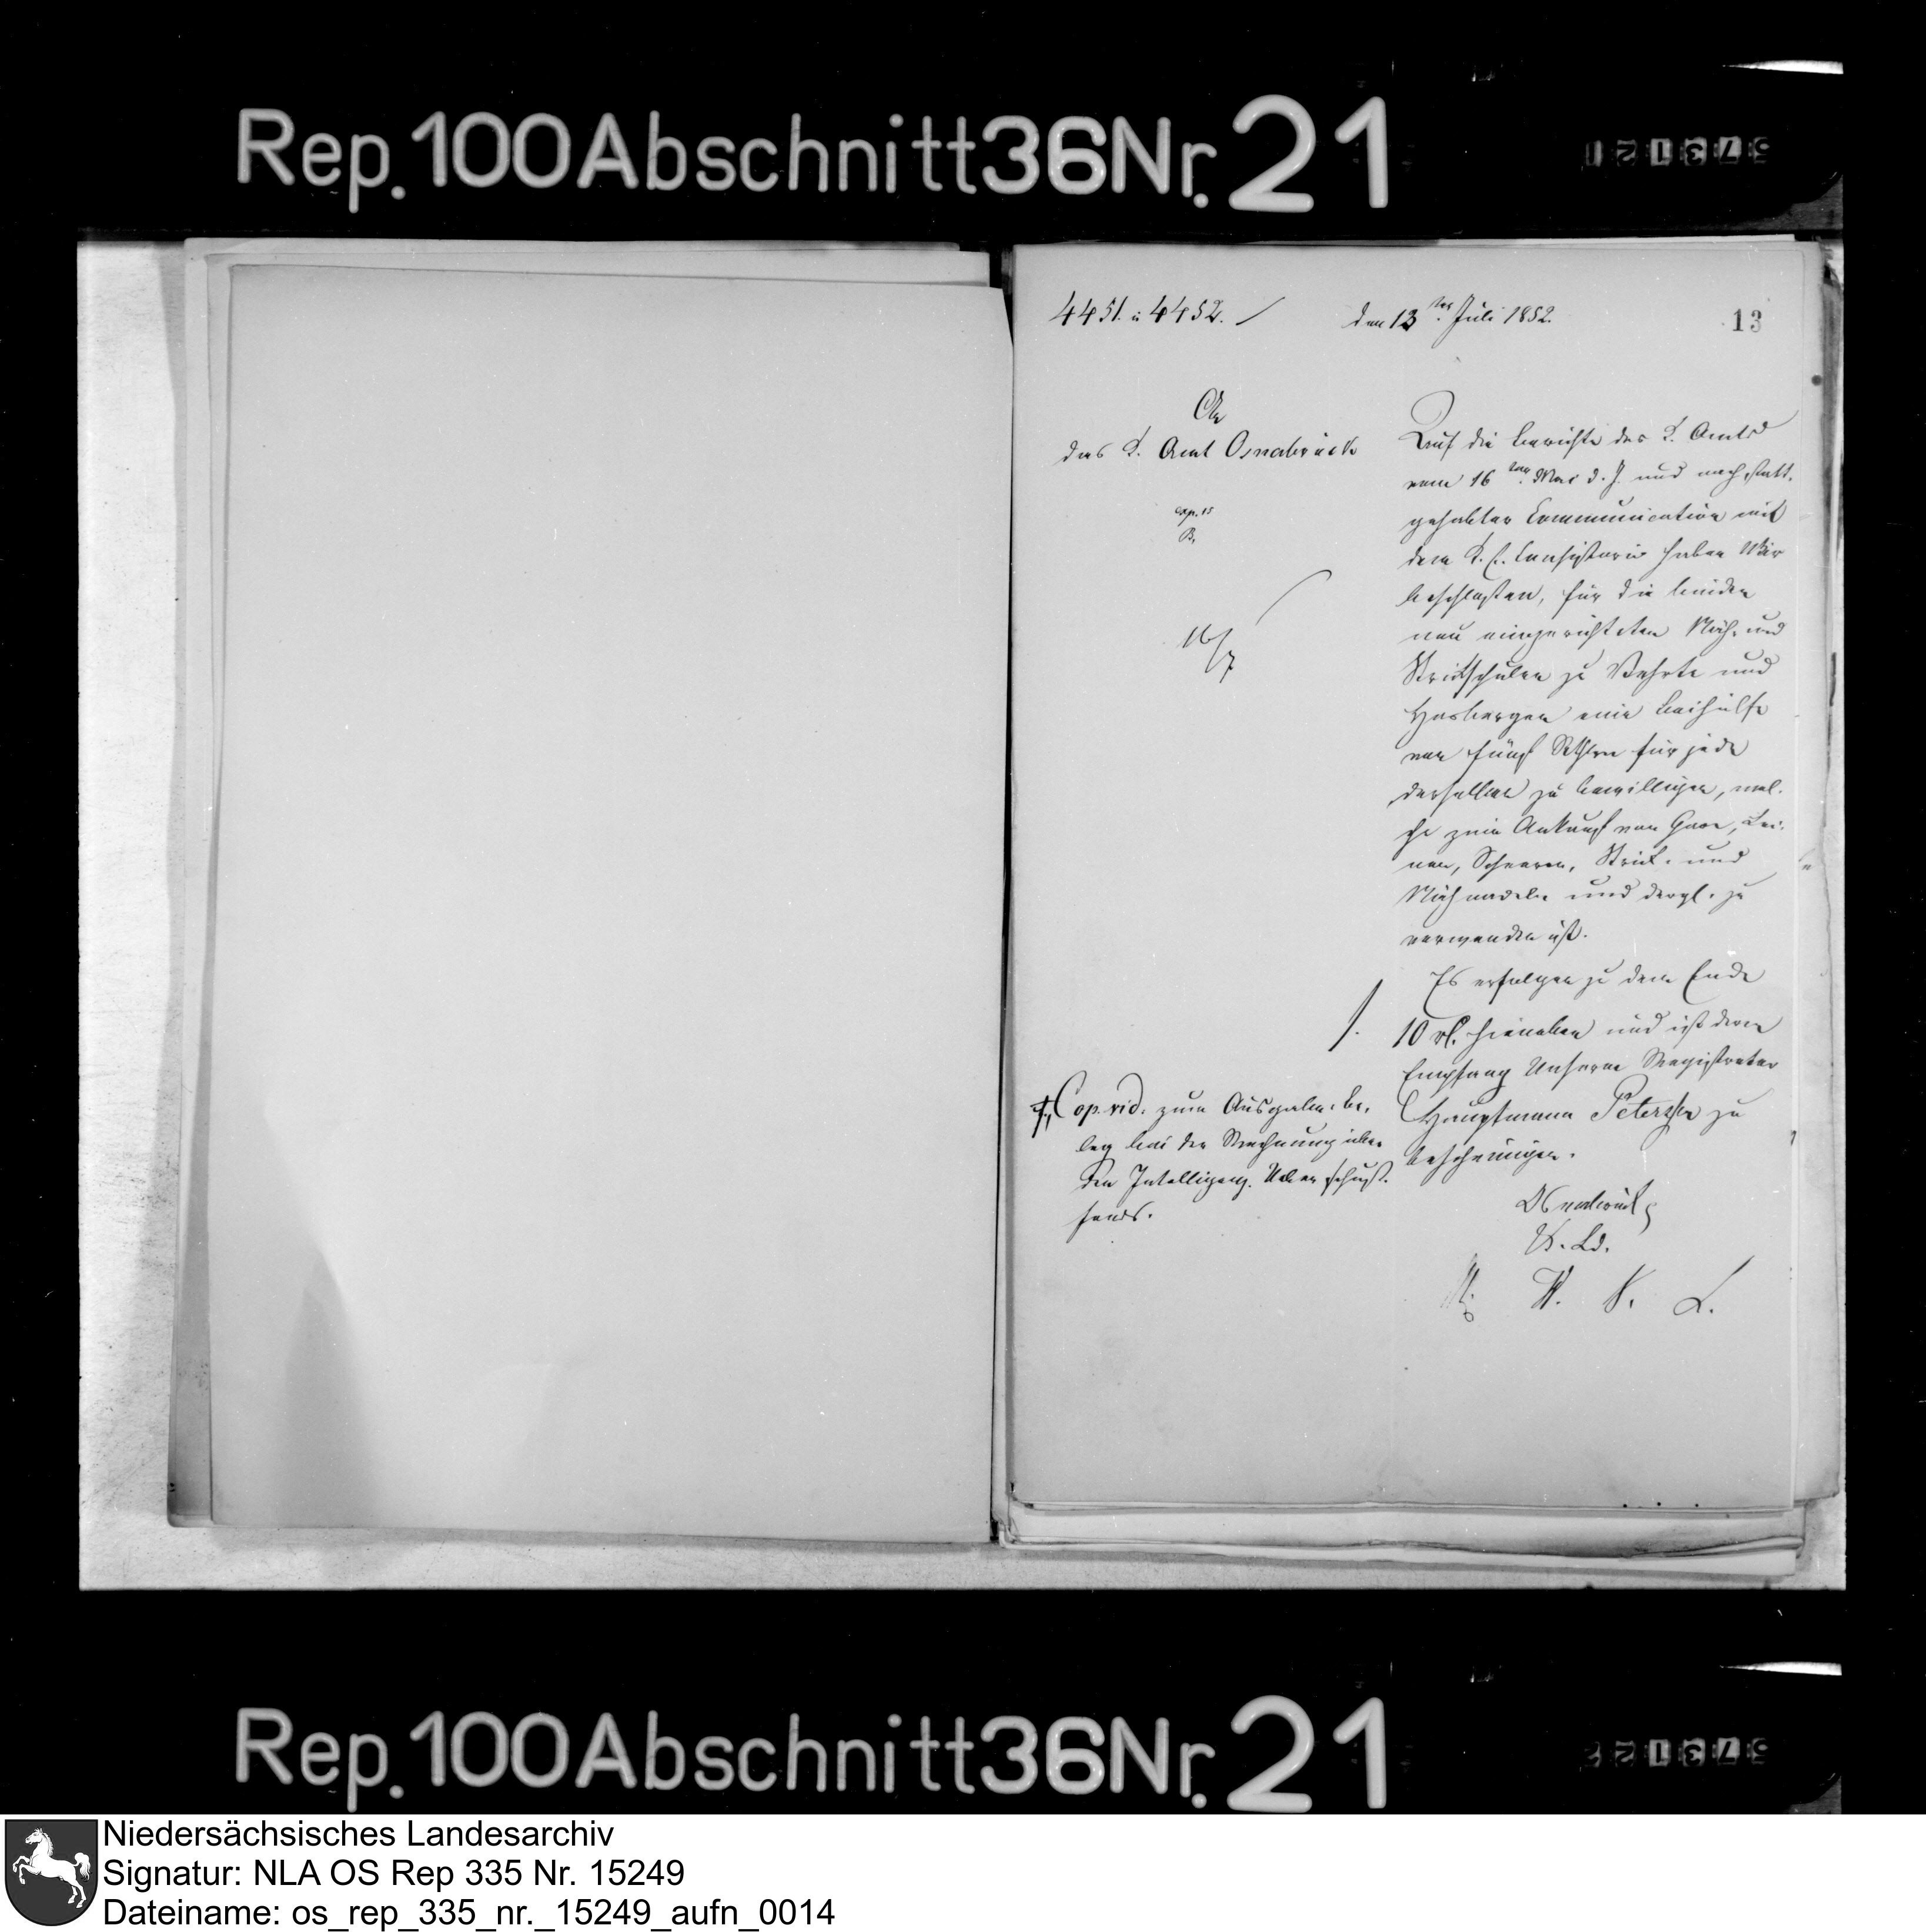 Rep. 100 Abschnitt 36 Nr. 21
4451. u 4452.
den 13ten Juli 1852.
13
An
das K. Amt Osnabrück
exp. 15
B.
16/7
Auf die Berichte des K. Amts
vom 16ten Mai d. J. und nach statt-
gehabter Communication mit
dem K. C. Consistorio haben Wir
beschlossen, für die beiden
neu eingerichteten Näh- und
Strickschulen zu Vehrte und
Hasbergen eine Beihülfe
von fünf Rthlrn für jede
derselben zu bewilligen, wel-
che zum Ankauf von Garn, Lei-
nen, Scheeren, Strick- und
Nähnadeln und dergl. zu
verwenden ist.
Es erfolgen zu dem Ende
10 rl. hieneben und ist deren
Empfang Unserm Registrator
Hauptmann Peterssen zu
bescheinigen.
Osnabrück
K. Ld.
W. V. L.
Cop. vid. zum Ausgabe-Be-
leg bei der Rechnung über
den Intelligenz-Ueberschuß-
fonds.
Rep. 100 Abschnitt 36 Nr. 21
Niedersächsisches Landesarchiv
Signatur: NLA OS Rep 335 Nr. 15249
Dateiname: os_rep_335_nr._15249_aufn_0014